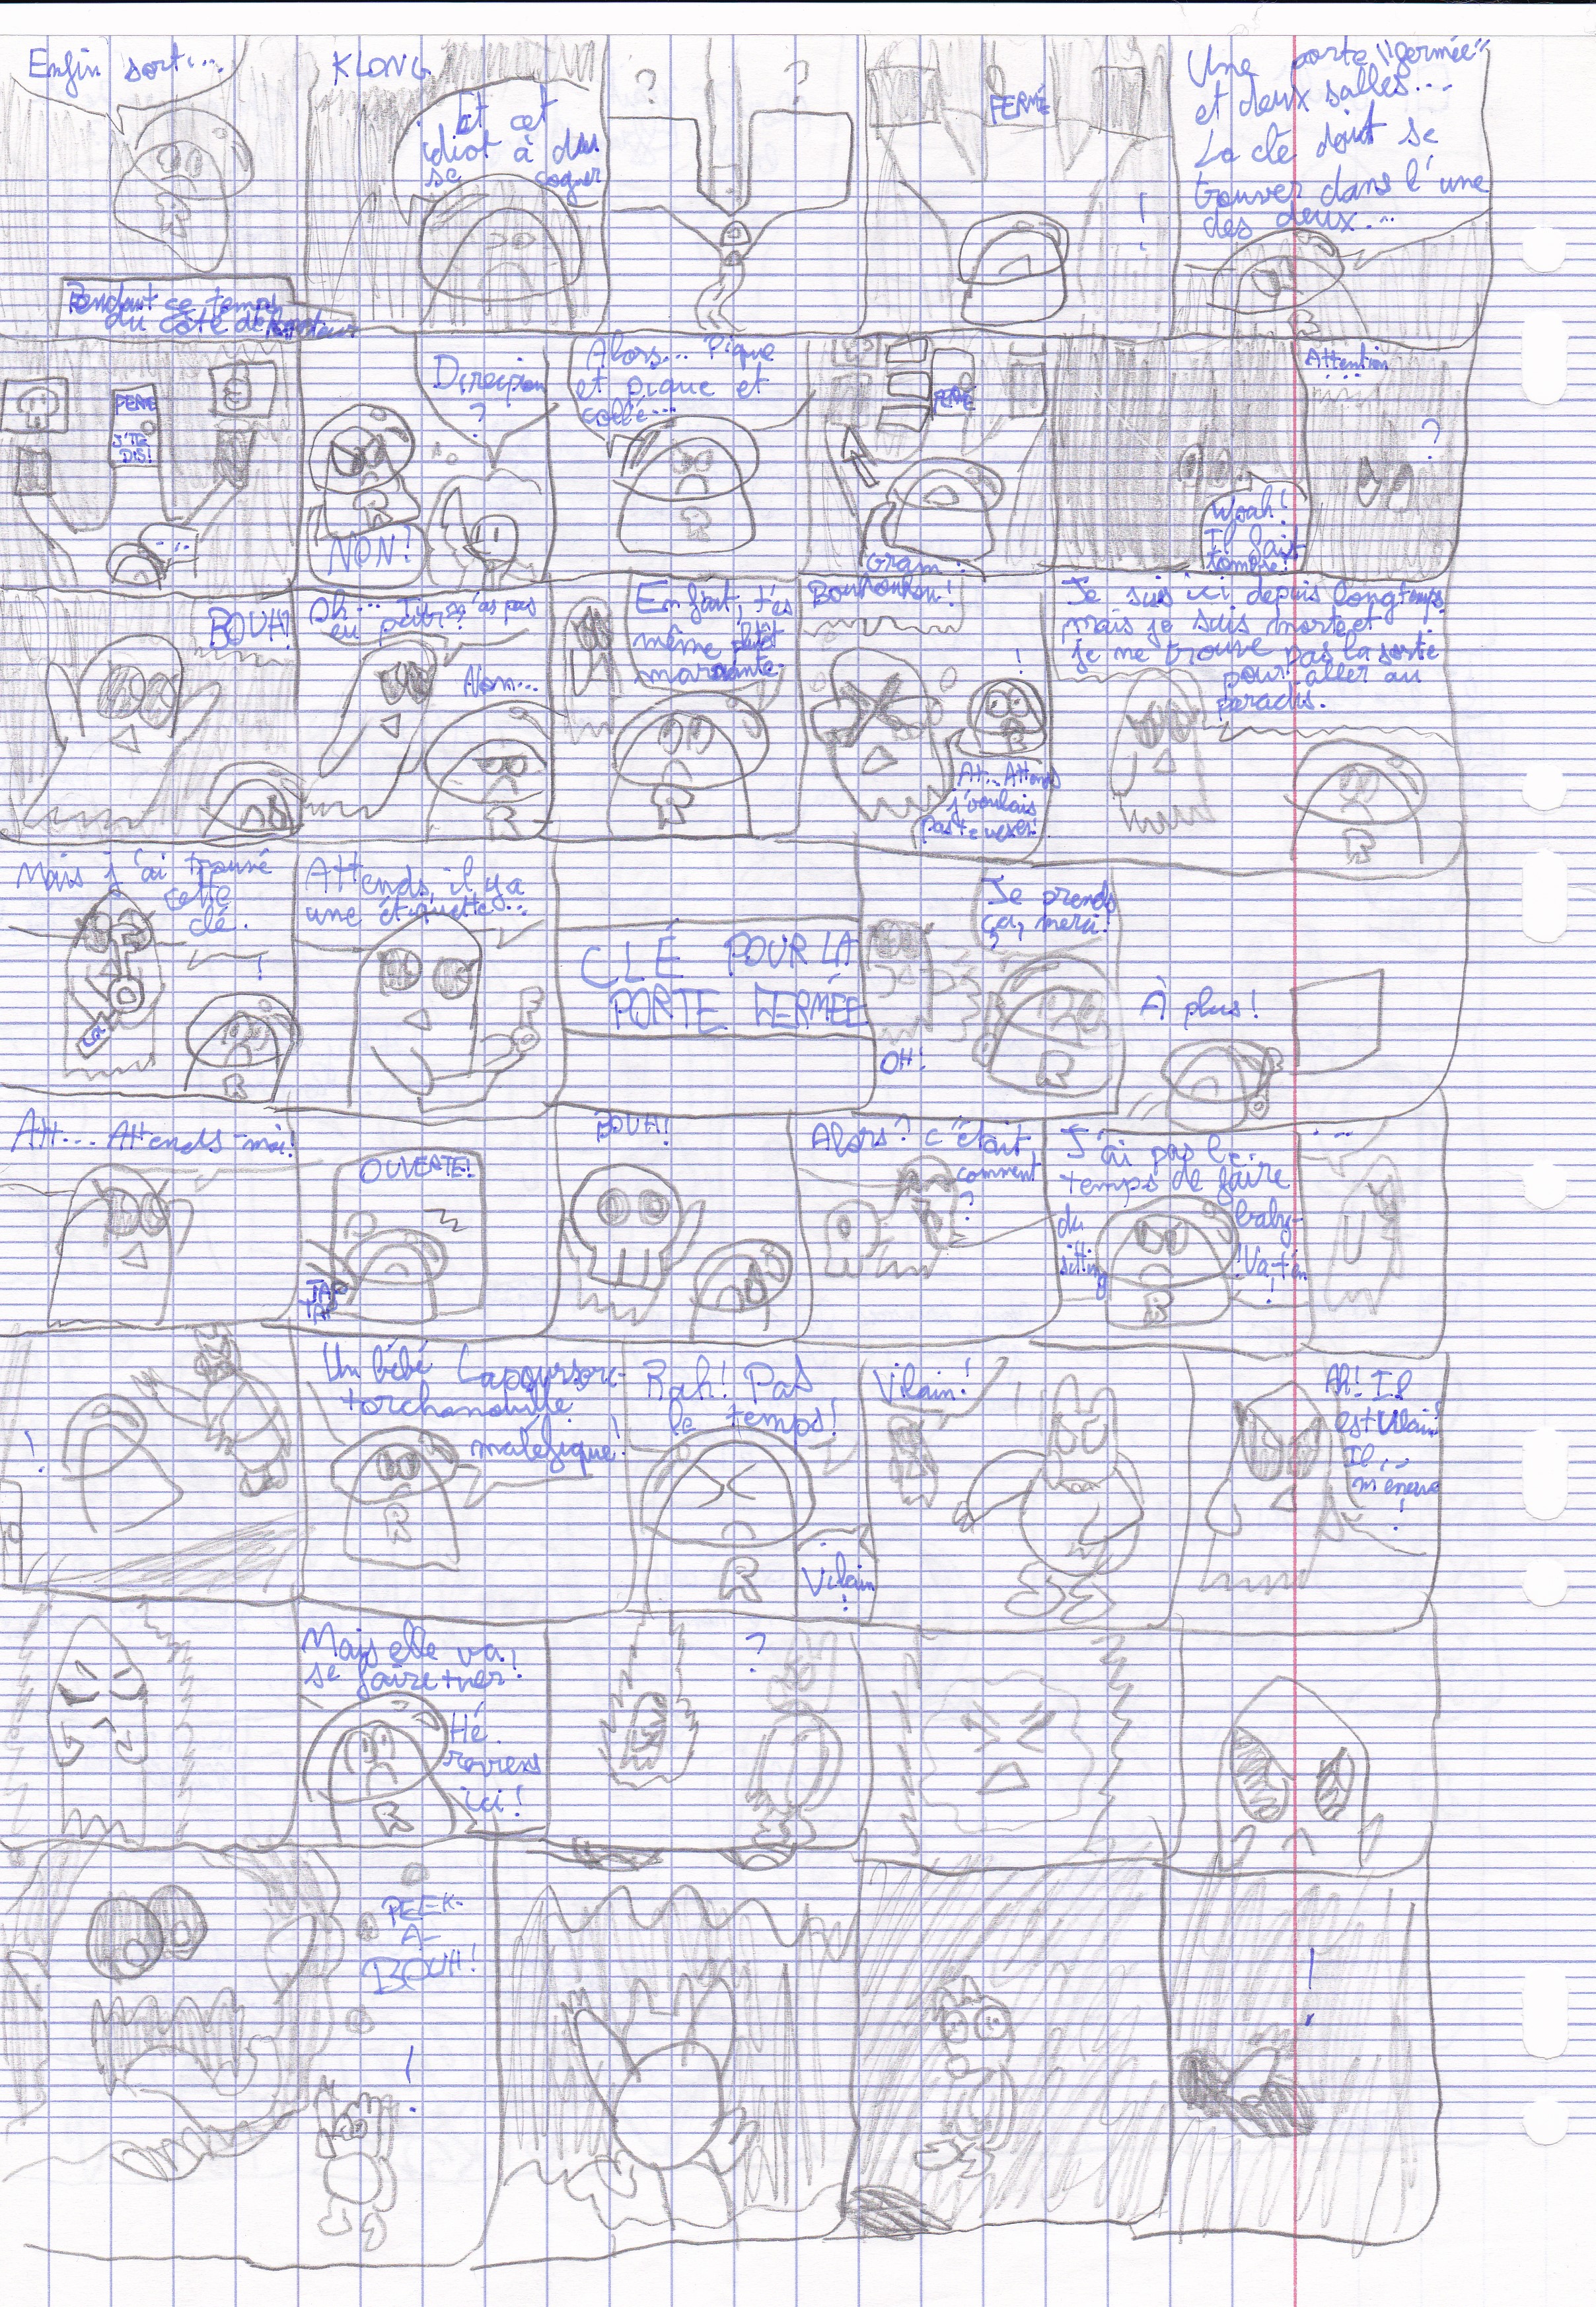 Enfin sorti...
KLONG
Et cet
idiot à du
se cogner
?
?
FERMÉ
!
Une porte "fermée"
et deux salles...
La clé doit se
trouver dans l'une
des deux...
Pendant ce temps
du côté de
FERMÉ
J'TE
DIS!
...
NON!
Direction
?
Alors... Pique
et pique et
collé...
FERMÉ
Gram...
Woah!
Il fait
sombre!
Attention
......
?
BOUH!
Oh... T'as pas
eu peur?
Non...
En fait, t'es
même plutôt
marrante.
Bouhouhou!
!
At... Attends
j'voulais
pas te vexer!
Je suis ici depuis longtemps
mais je suis morte et
je ne trouve pas la sortie
pour aller au
paradis.
Mais j'ai trouvé
cette
clé.
!
Attends, il y a
une étiquette...
CLÉ POUR LA
PORTE FERMÉE
Je prends
ça, merci!
OH!
À plus!
Att... Attends-moi!
OUVERTE!
TAP
TAP
BOUH!
Alors? c'était
comment
?
J'ai pas le
temps de faire
du baby-
sitting
! Va-t'en
!
...
!
Un bébé
maléfique!
Rah! Pas
le temps!
Vilain
!
Vilain!
Ah! Il
est vilain!
Il...
m'énerve
!
Mais elle va
se faire tuer!
Hé
reviens
ici!
?
PEEK-
A-
BOUH!
!
!